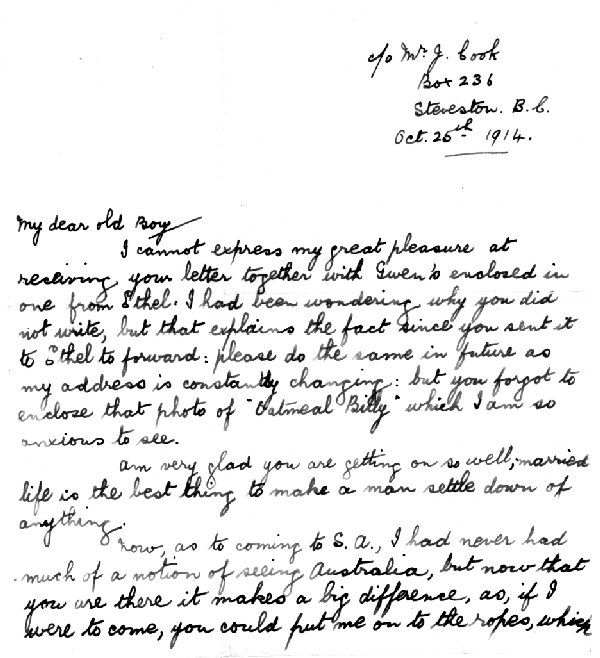 c/o Mr. J. Cook
Box 236
Steveston. B.C.
Oct. 25th 1914.
My dear old Boy
I cannot express my great pleasure at
receiving your letter together with Gwen's enclosed in
one from Ethel. I had been wondering why you did
not write, but that explains the fact since you sent it
to Ethel to forward: please do the same in future as
my address is constantly changing: but you forgot to
enclose that photo of "Oatmeal Billy" which I am so
anxious to see.
am very glad you are getting on so well, married
life is the best thing to make a man settle down of
anything.
Now, as to coming to S.A., I had never had
much of a notion of seeing Australia, but now that
you are there it makes a big difference, as, if I
were to come, you could put me on to the ropes, which